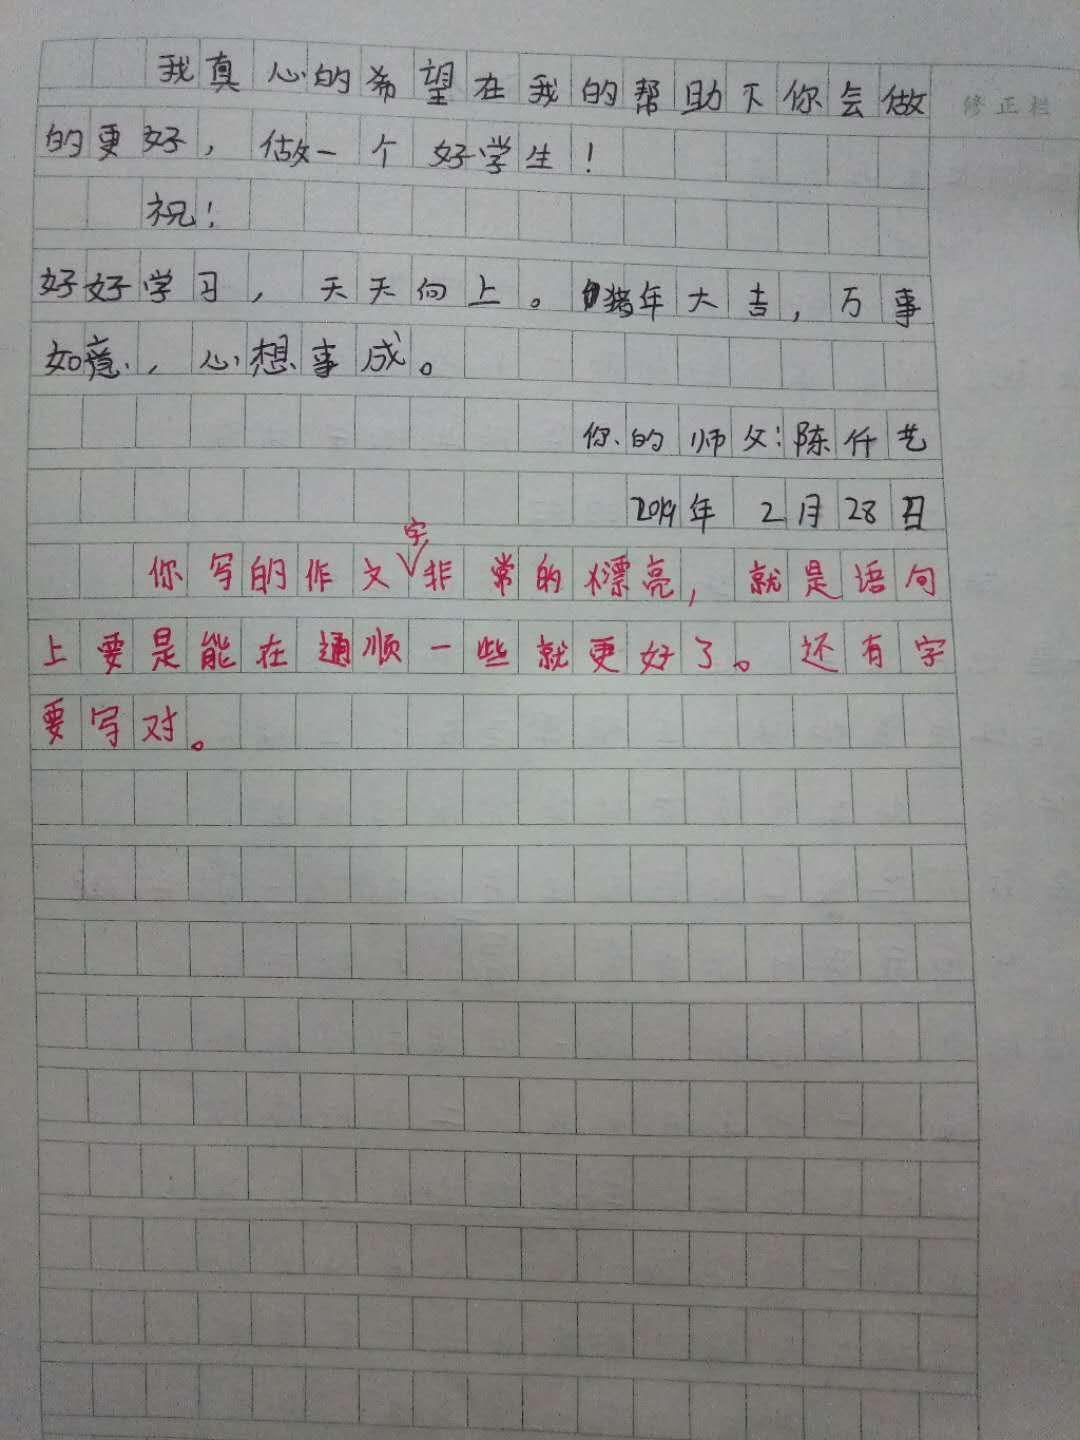 我真心的希望在我的帮助下你会做
修正栏
的更好，做一个好学生！
祝！
好好学习，天天向上。猪年大吉，万事
如意，心想事成。
你的师父：陈仟艺
2019年2月28日
字
你写的作文非常的漂亮，就是语句
上要是能在通顺一些就更好了。还有字
要写对。